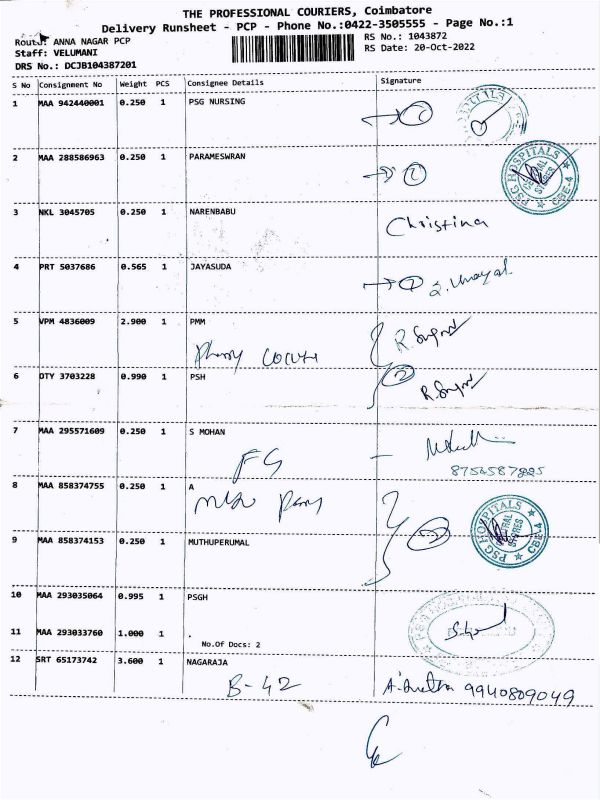 THE PROFESSIONAL COURIERS, Coimbatore
Delivery Runsheet - PCP - Phone No.:0422-3505555 - Page No.:1
Route: ANNA NAGAR PCP
Staff: VELUMANI
DRS No.: DCJB104387201
RS No.: 1043872
RS Date: 20-Oct-2022
S No Consignment No Weight PCS Consignee Details Signature
1 MAA 942440001 0.250 1 PSG NURSING
2 MAA 288586963 0.250 1 PARAMESWRAN
PSG HOSPITALS CENTRAL STORES CBE-4
3 NKL 3045705 0.250 1 NARENBABU Christina
4 PRT 5037686 0.565 1 JAYASUDA
5 VPM 4836009 2.900 1 PMM
6 DTY 3703228 0.990 1 PSH
7 MAA 295571609 0.250 1 S MOHAN
FG
8 MAA 858374755 0.250 1 A
PSG HOSPITALS CENTRAL STORES CBE-4
9 MAA 858374153 0.250 1 MUTHUPERUMAL
10 MAA 293035064 0.995 1 PSGH
11 MAA 293033760 1.000 1 .
No.Of Docs: 2
12 SRT 65173742 3.600 1 NAGARAJA
B-42 9940809049